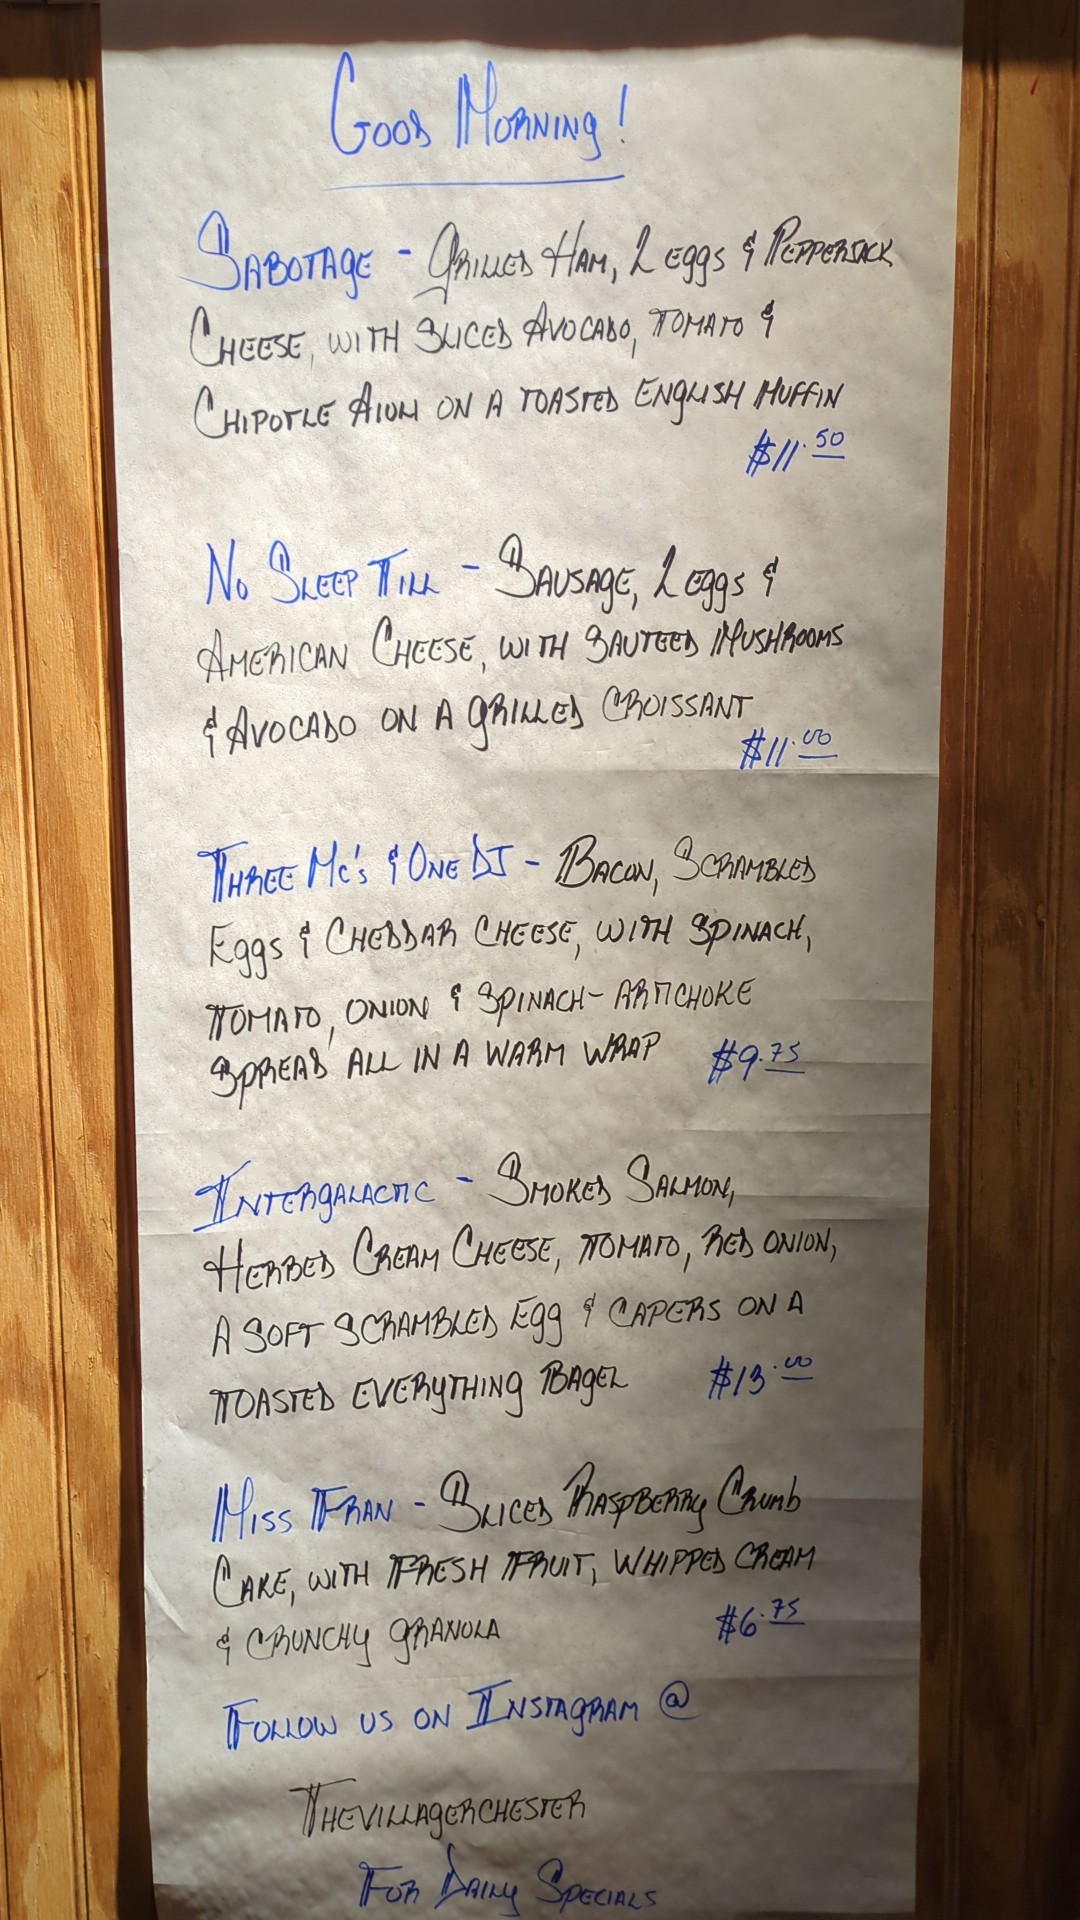 Good Morning!
Sabotage - Grilled Ham, 2 eggs & Pepperjack
Cheese, with Sliced Avocado, Tomato &
Chipotle Aioli on a toasted English Muffin
$11.50
No Sleep Till - Sausage, 2 eggs &
American Cheese, with Sauteed Mushrooms
& Avocado on a grilled Croissant
$11.00
Three Mc's & One DJ - Bacon, Scrambled
Eggs & Cheddar Cheese, with Spinach,
Tomato, Onion & Spinach-Artichoke
Spread all in a warm wrap $9.75
Intergalactic - Smoked Salmon,
Herbed Cream Cheese, Tomato, Red Onion,
A Soft Scrambled Egg & Capers on a
Toasted Everything Bagel $13.00
Miss Fran - Sliced Raspberry Crumb
Cake, with Fresh Fruit, Whipped Cream
& Crunchy Granola $6.75
Follow us on Instagram @
Thevillagerchester
For Daily Specials